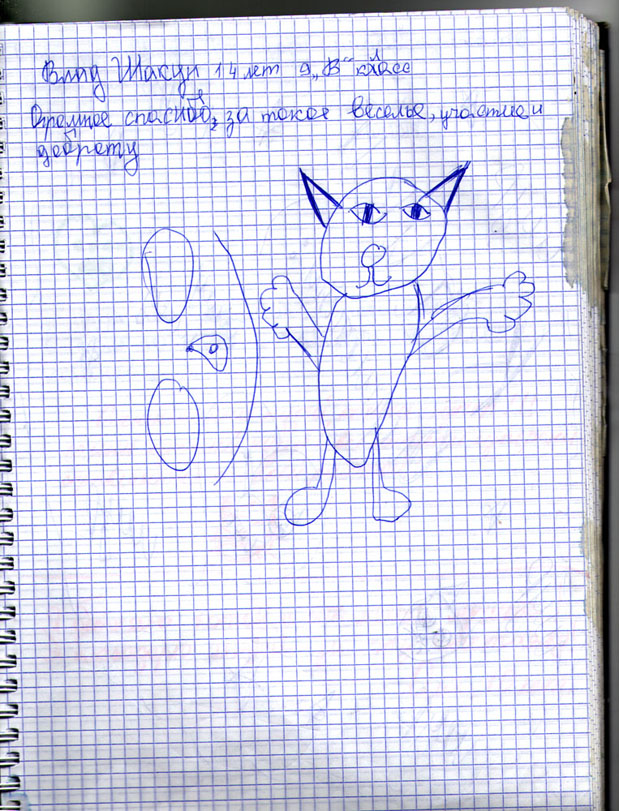 Влад Шакун 14 лет 9 „В" класс
Огромное спасибо, за такое веселье, участие и
доброту